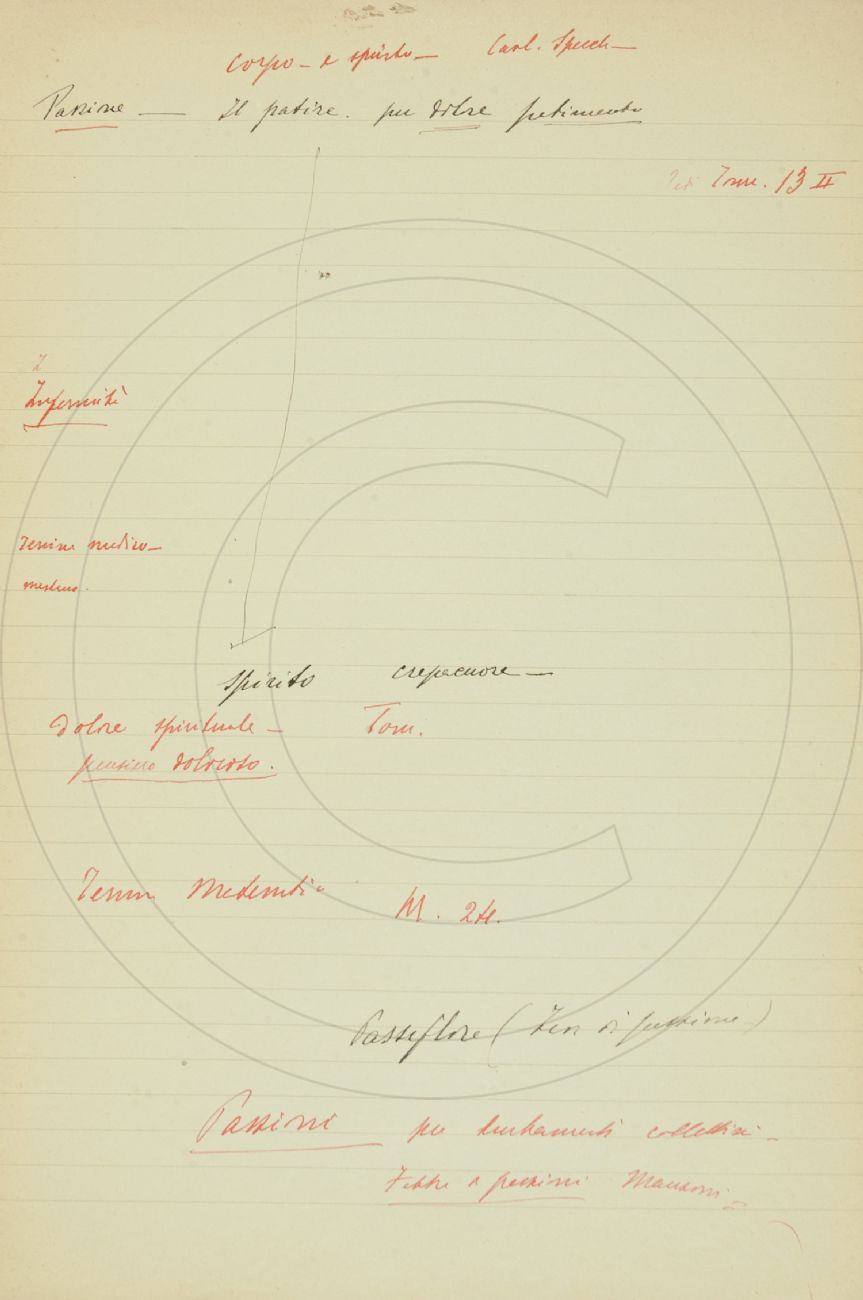 Corpo - e spirito - Carl. Speech -
Passione — Il patire. per dolore patimento
Vedi Tomm. 13 II
Infermità
Termine medico -
spirito crepacuore -
Dolore spirituale - Tom.
pensiero doloroso.
Termin M. 24.
Passiflore (Fior di passione)
Passioni per turbamenti collettivi -
Febbri e passioni Manzoni -